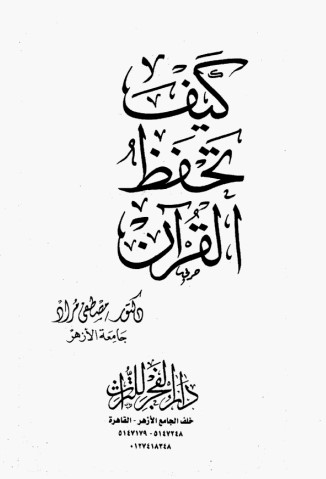 كيف
تحفظ
القرآن
دكتور مصطفى مراد
جامعة الأزهر
دار الفجر للتراث
خلف الجامع الأزهر - القاهرة
٥١٤٧٢٤٨ - ٥١٤٧١٧٩
٠١٢٧٤١٨٣٤٨